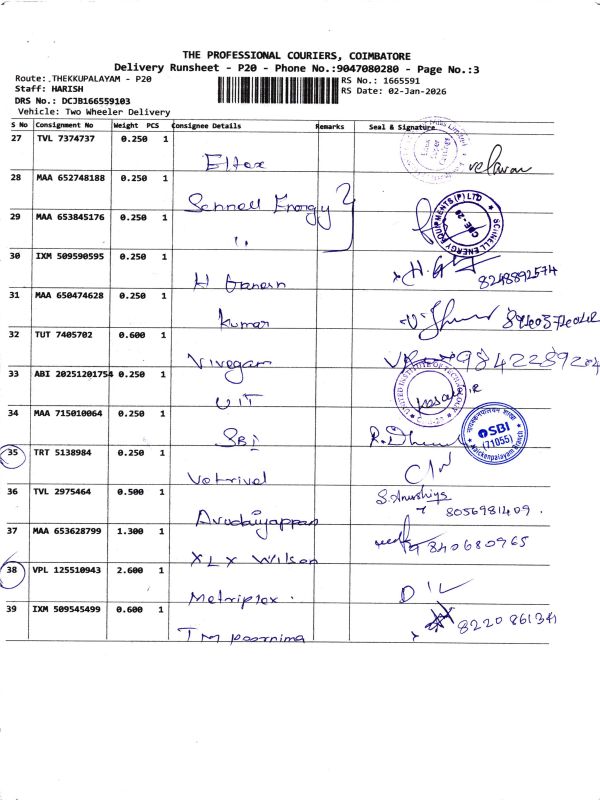 THE PROFESSIONAL COURIERS, COIMBATORE
Delivery Runsheet - P20 - Phone No.:9047080280 - Page No.:3
Route: THEKKUPALAYAM - P20
RS No.: 1665591
Staff: HARISH
RS Date: 02-Jan-2026
DRS No.: DCJB166559103
Vehicle: Two Wheeler Delivery
S No Consignment No Weight PCS Consignee Details Remarks Seal & Signature
27 TVL 7374737 0.250 1
28 MAA 652748188 0.250 1
Energy
SCINELL ENERGY EQUIPMENTS (P) LTD
CBE-29
29 MAA 653845176 0.250 1
"
30 IXM 509590595 0.250 1
H Ganesh
8248892574
31 MAA 650474628 0.250 1
Kumar
32 TUT 7405702 0.600 1
Vivegam
9842289204
33 ABI 20251201754 0.250 1
UIT
UNITED INSTITUTE OF TECHNOLOGY
34 MAA 715010064 0.250 1
SBI
SBI
(71055)
Naickenpalayam Branch
35 TRT 5138984 0.250 1
Vetrivel
36 TVL 2975464 0.500 1
Avudaiyappan
8056981409
37 MAA 653628799 1.300 1
XLX Wilson
9840680965
38 VPL 125510943 2.600 1
39 IXM 509545499 0.600 1
TM Poornima
8220861341